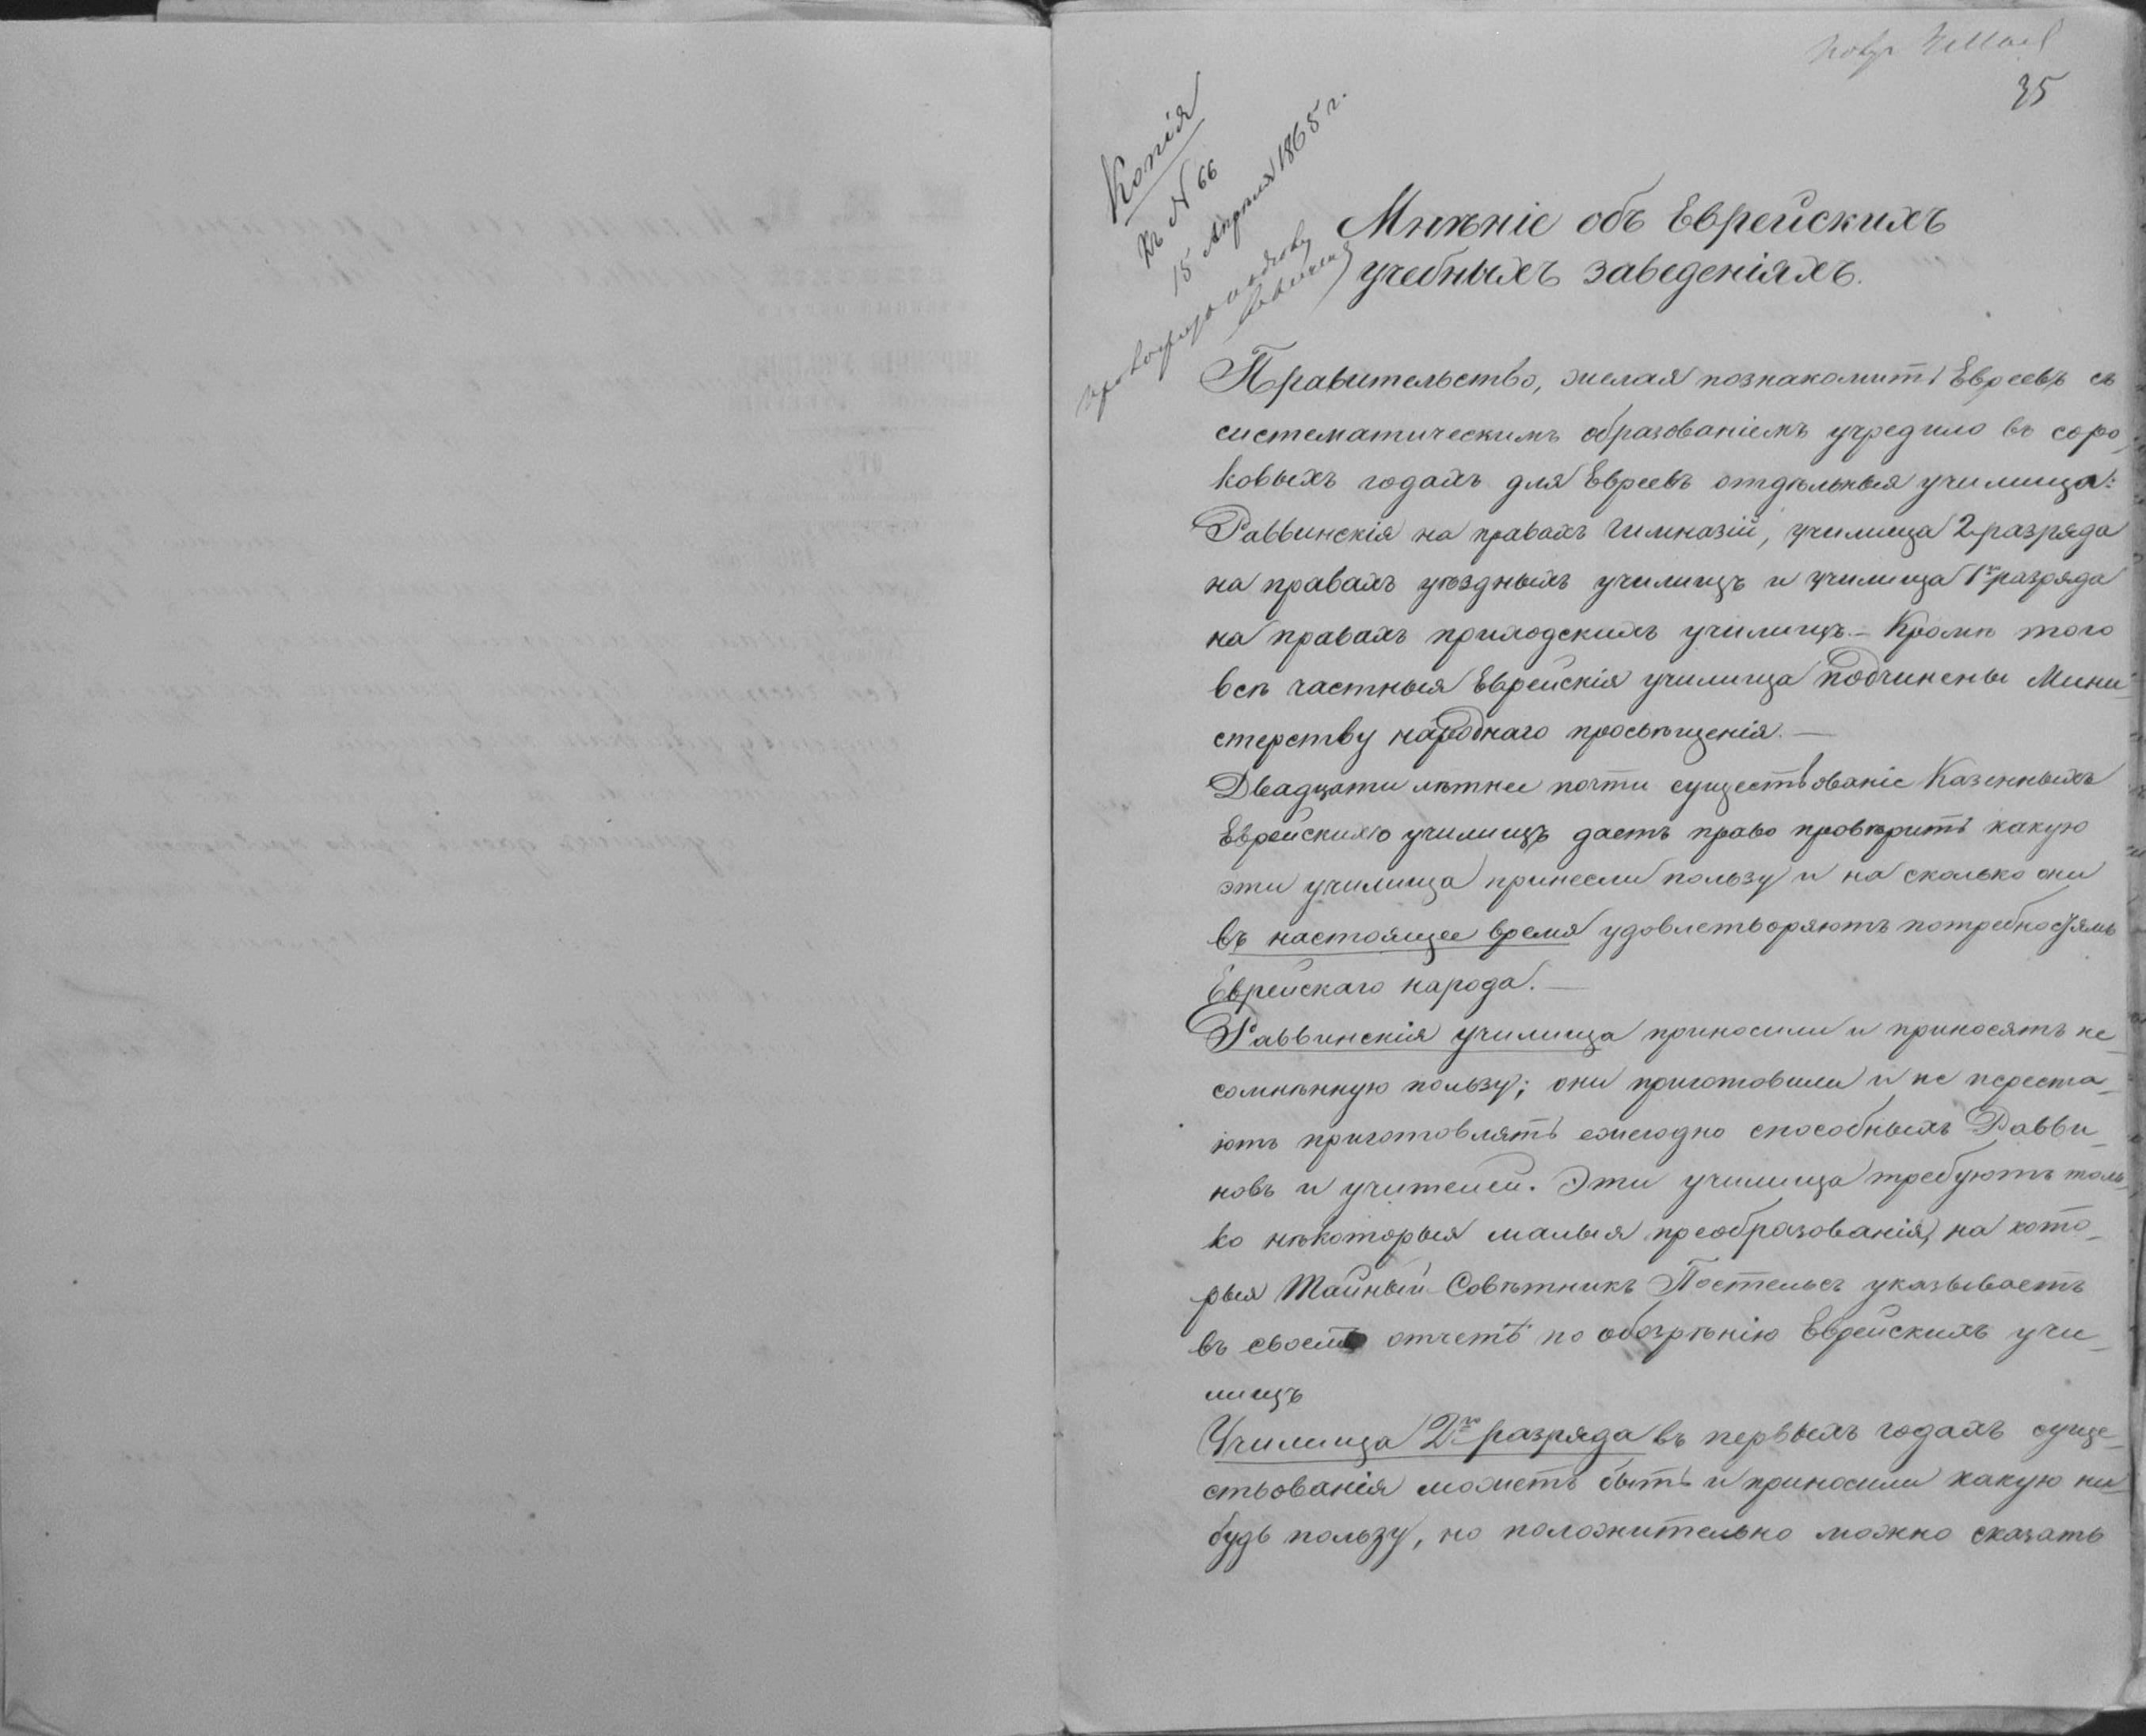 35
Копія
къ № 66
15 Апреля 1865 г.
Мнѣніе объ Еврейскихъ
учебныхъ заведеніяхъ.
Правительство, желая познакомить Евреевъ съ
систематическимъ образованіемъ учредило въ соро
ковыхъ годахъ для Евреевъ отдѣльныя училища:
Раввинскія на правахъ Гимназій, училища 2 разряда
на правахъ уѣздныхъ училищъ и училища 1го разряда
на правахъ приходскихъ училищъ.— Кромѣ того
всѣ частныя Еврейскія училища подчинены Мини
стерству народнаго просвѣщенія.—
Двадцати лѣтнее почти существованіе Казенныхъ
Еврейскихъ училищъ даетъ право провѣрить какую
эти училища принесли пользу и на сколько они
въ настоящее время удовлетворяютъ потребностямъ
Еврейскаго народа.—
Раввинскія училища приносили и приносятъ не
сомнѣнную пользу; они приготовили и не переста
ютъ приготовлять ежегодно способныхъ Равви
новъ и учителей. Эти училища требуютъ толь
ко нѣкоторыя малыя преобразованія, на кото
рыя Тайный Совѣтникъ Постельсъ указываетъ
въ своемъ отчетѣ по обозрѣнію Еврейскихъ учи
лищъ
Училища 2го разряда въ первыхъ годахъ суще
ствованія можетъ быть и приносили какую ни
будь пользу, но положительно можно сказать